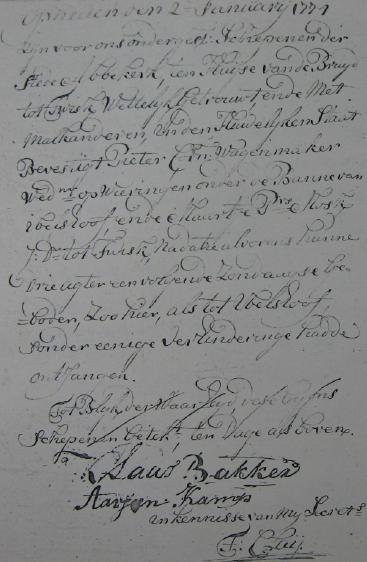 Op heeden den 2e January 1771
zijn voor ons ondergest: Schepenen der
Steede Abbekerk, ten Huise van de Bruyd
tot Twisk Wettelyk getrouwt, ende Met
Malkanderen, in den Huwelyken Staat
Bevestigt Pieter Wagenmaker
Wed op Wieringen onder de Banne van
ende Maartje Kok
J: Dr tot Twisk, Nadat alvorens hunne
Drie agter een volgende Zondaagse Ge-
-boden, Zoo hier, als tot
sonder eenige verhinderinge hadde
ontfangen.
Tot Blijk der Waarheyd, dese by ons
Schepenen getek:t, ten dage als boven.
Claas Bakker
Aarjen Kamp
in kennisse van My Secrets